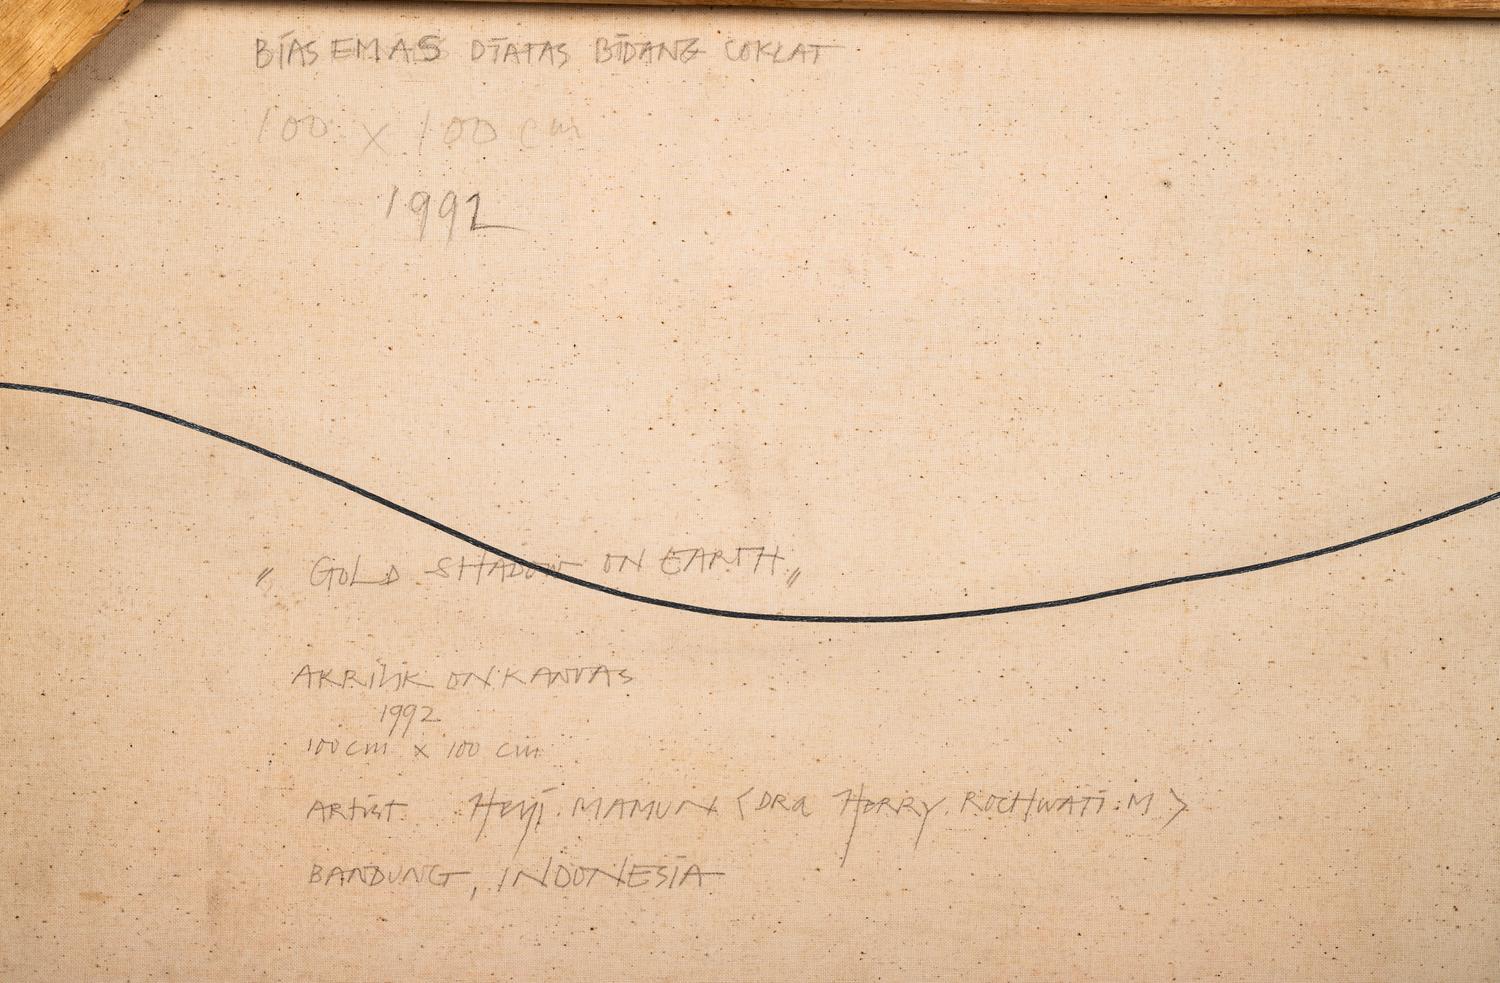 BIAS EMAS DIATAS BIDANG COKLAT
100 x 100 cm
1992
" GOLD SHADOW ON EARTH "
AKRILIK ON KANVAS
1992
100 cm x 100 cm
ARTIST Heyi. MAMUN (DRA HERRY. ROCHWATI. M)
BANDUNG, INDONESIA